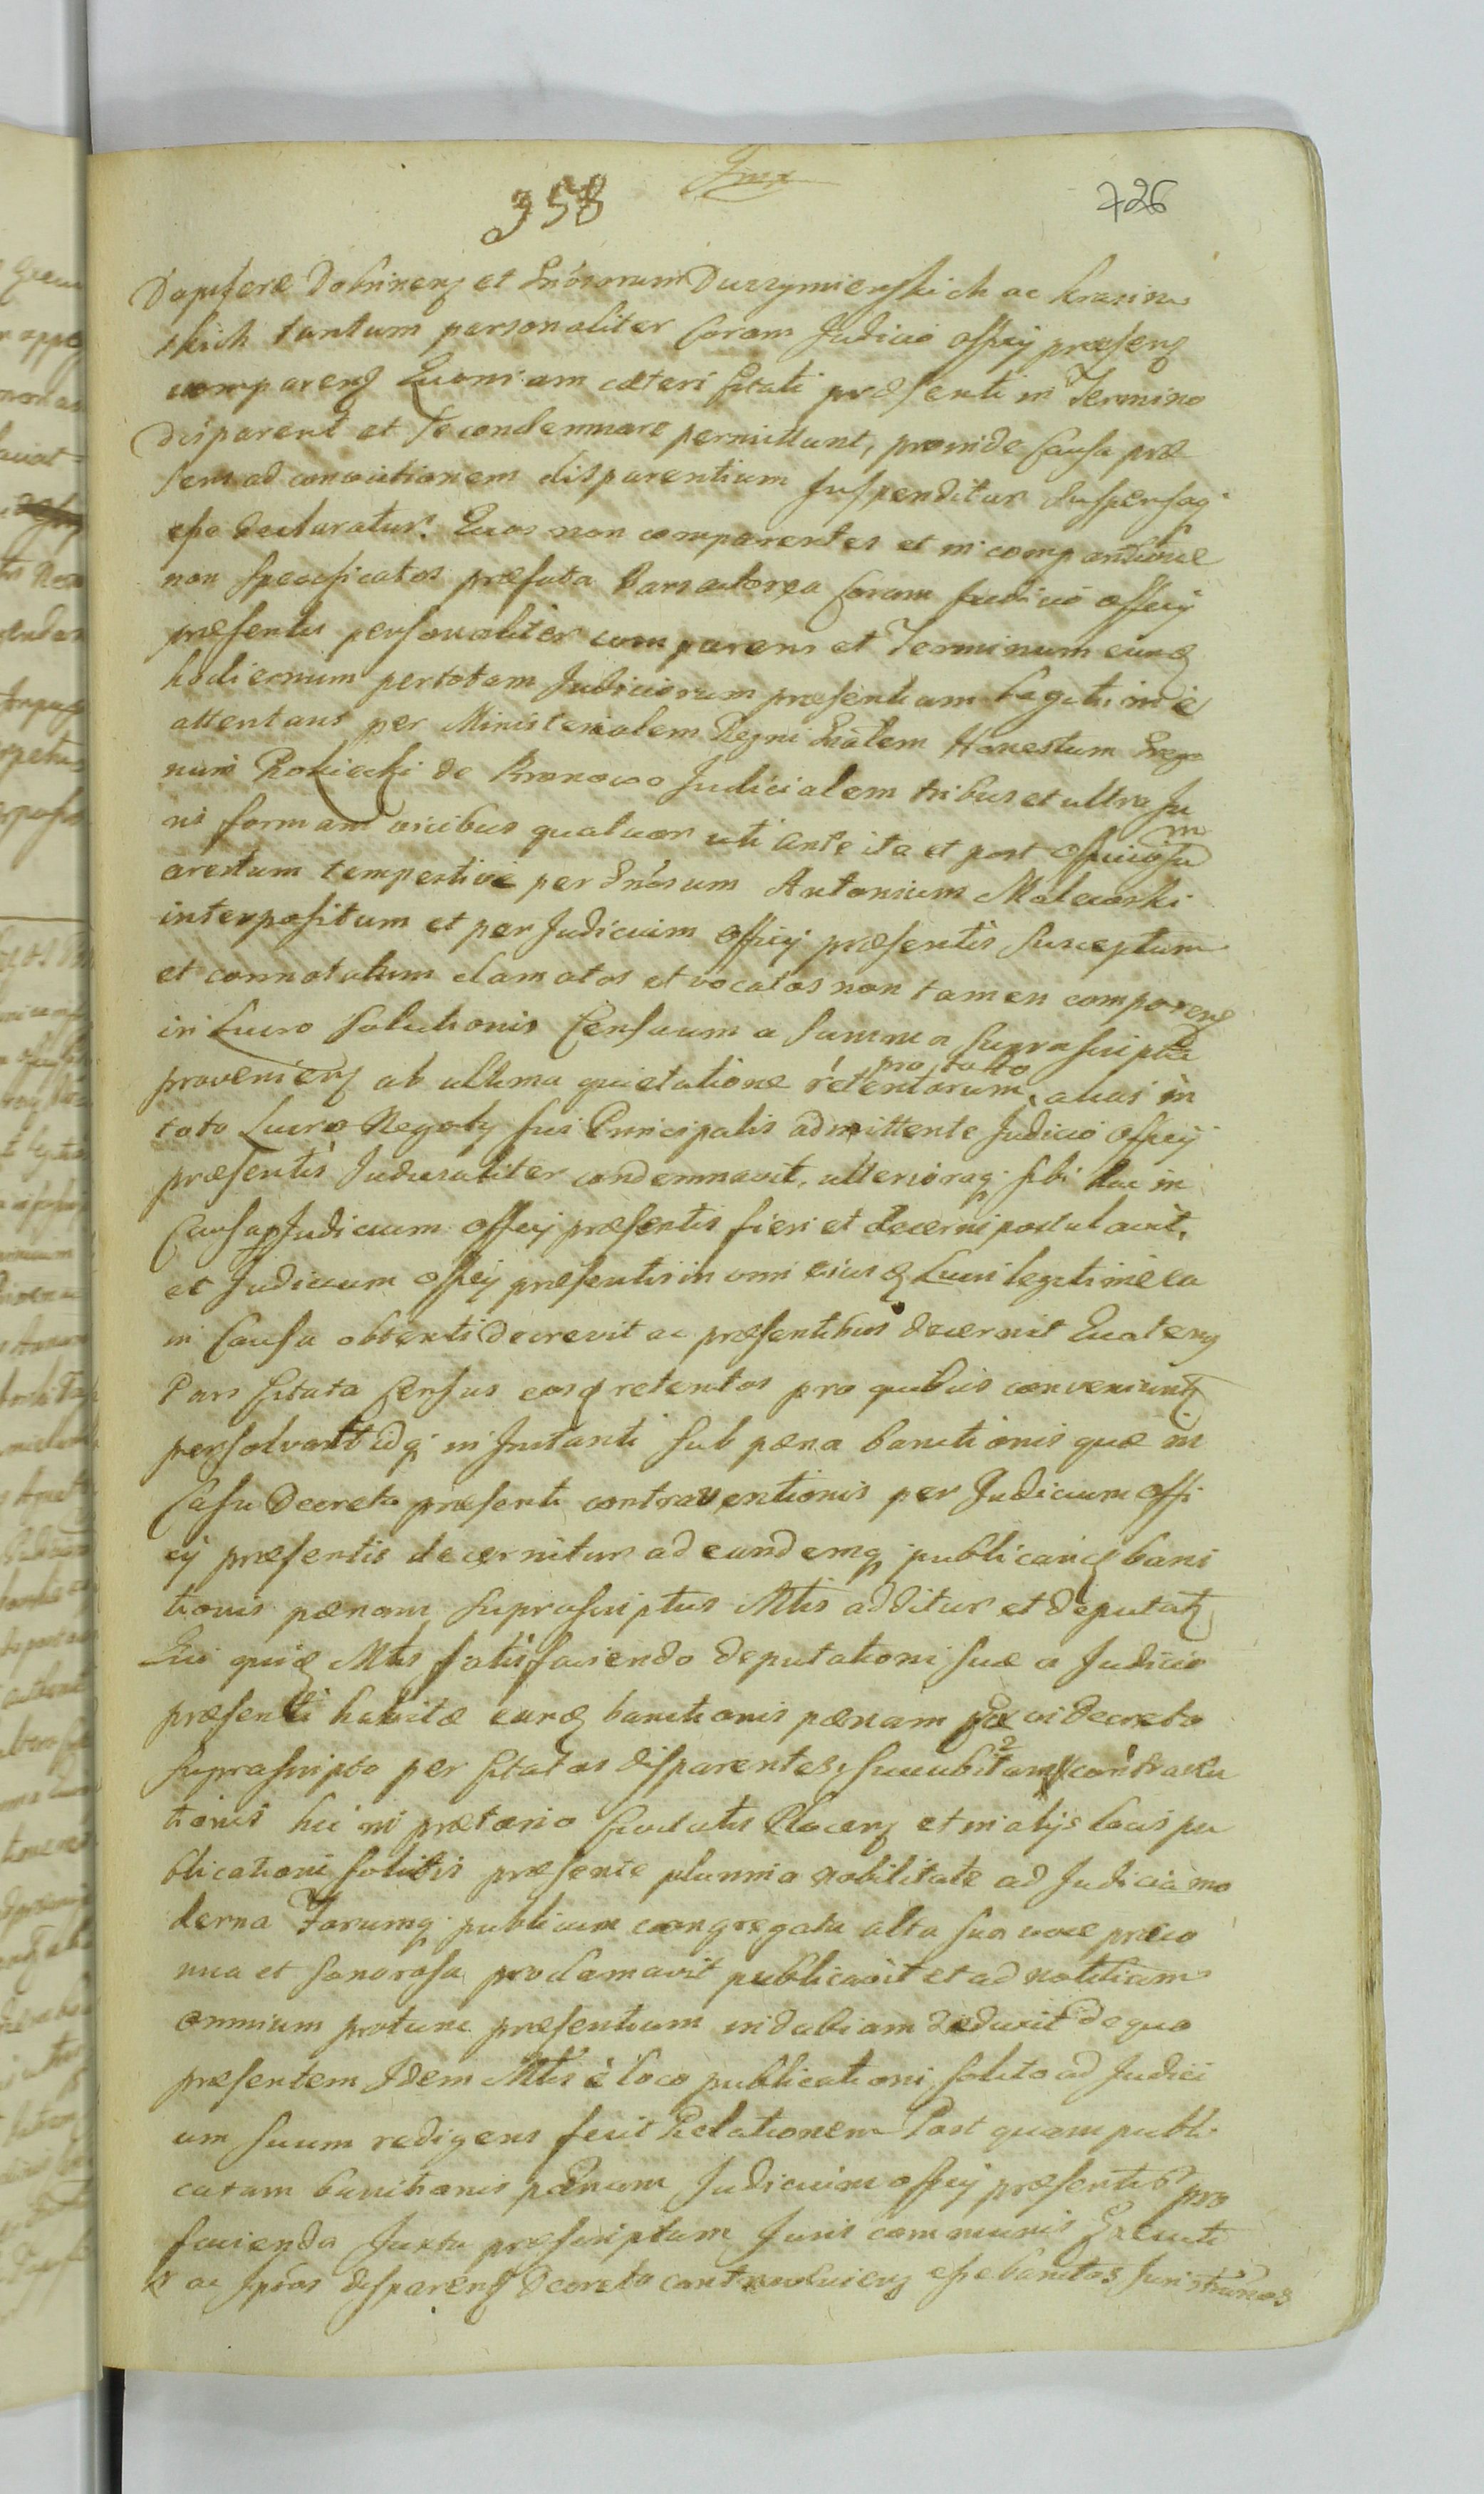 358
726
Dapiferæ Dobrinens et Gnosorum Duczymienskich ac Krasin
skich tantum personaliter Coram Judicio Officij præsens
comparens Quoniam cæteri Citati præsenti in Termino
disparent et Se condemnare permittunt, proinde Causa præ
sens ad convictionem disparentium Suspenditur Suspensaq
esse declaratur. Quos non comparentes et in comparitione
non Specificatos præfata Pars actorea Coram Judicio Officij
præsentis personaliter comparens et Terminum eund
hodiernum per totam Judiciorum præsentiam Legitime
attentans per Ministerialem Regni Gnalem Honestum
Rokicki de Bronowo Judicialem tribus et ultra Ju
ris formam vicibus quatuor uti ante ita et post Officiosum
arestum tempestive per Gnosum Antonium Malewski
interpositum et per Judicium Officij præsentis Susceptum
et connotatum clamatos et vocatos non tamen comparens
in Lucro Solutionis Censuum a Summa Suprascripta
proveniens ab ultima quietatione retentorum pro toto, alias in
toto Lucro Negotij Sui Principalis admittente Judicio Officij
præsentis Judicialiter condemnavit, ulterioraq sibi hac in
Causa p Judicium Officij præsentis fieri et decerni postulavit,
et Judicium Officij præsentis in vim eiusd Lucri legitime ea
in Causa obtenti Decrevit ac præsentibus decernit Quatenus
Pars Citata Census eosq retentos pro quibus conveniunt
persolvant idq in Instanti Sub pæna banitionis quæ in
Casu Decreto præsenti contraventionis per Judicium Offi
cij præsentis decernitur ad eandemq publicand bani
tionis pænam Suprascriptus Mtis additur et deputat
Qui quid Mtis satisfaciendo deputationi suæ a Judicio
præsenti habitæ eand banitionis pænam vi Decreto
Suprascripto per Citatos disparentes, Succubitam contraven
tionis hic in prætorio Civitatis Plocens et in alijs locis pu
blicationi solitis præsente plurima nobilitate ad Judicia mo
derna Forumq publicum congregata alta sua voce præco
nica et sonorosa proclamavit publicavit et ad notitiam
omnium protunc præsentium indubiam deduxit de quo
præsentem Idem Mtis è loco publicationi solito ad Judici
um Suum redigens fecit Relationem Post quam publi
catam banitionis pænam Judicium Officij præsentis pro
facienda Juxta præscriptum Juris communis Executi
ac Ipsos disparens Decreto contraveniens esse banitos Juris